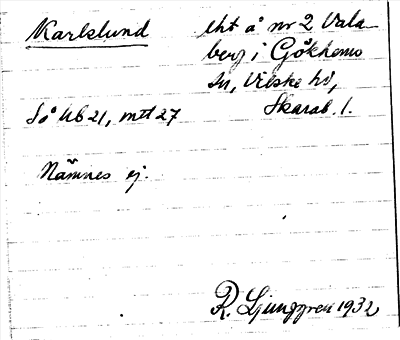 Karlslund
lht å nr 2 Vala-
berg i Gökhems
sn, Vilske hd,
Skarab. l.
So Ub 21, mtl 27
Nämnes ej.
R. Ljunggren 1932